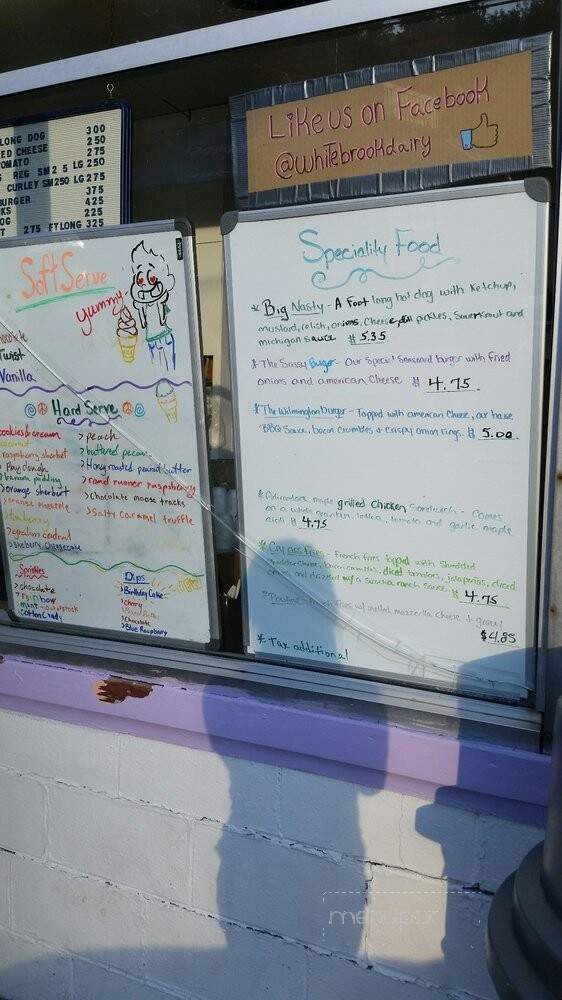 LONG DOG 300
ED CHEESE 250
TOMATO 275
REG SM 2 5 LG 250
CURLEY SM 250 LG 275
BURGER 375
RKS 425
OG 225
T 275 FT LONG 325
Like us on Facebook
@whitebrookdairy
Soft Serve
yummy
Twist
Vanilla
Hard Serve
cookies & cream
raspberry sherbet
Play dough
banana pudding
orange sherbert
orange pineapple
graham central
Blueberry Cheesecake
> peach
> buttered pecan
> Honey roasted peanut butter
> road runner raspberry
> chocolate moose tracks
> Salty Caramel truffle
Sprinkles
> chocolate
> rainbow
> mint
> Cotton Candy
Dips
> Birthday Cake
> cherry
> Chocolate
> Blue Raspberry
Speciality Food
* Big Nasty - A Foot long hot dog with Ketchup,
mustard, relish, onions, Cheese, dill pickles, Sauerkraut and
michigan sauce $ 5.35
* The Sassy Burger - Our Special Seasoned burger with fried
onions and american Cheese $ 4.75
* The Wilmington Burger - Topped with american Cheese, our house
BBQ Sauce, bacon Crumbles + Crispy onion rings. $ 5.00
* Adirondack maple grilled Chicken Sandwich - Comes
on a whole lettuce, tomato and garlic maple
aioli $ 4.75
* Cry ass Fries - French fries topped with Shredded
Cheddar Cheese, bacon crumbles, diced tomatoes, jalapeños, diced
onions and drizzled w/ a sriracha ranch sauce. $ 4.75
* Poutine - French fries w/ melted mozzerella cheese + gravy
$4.25
* Tax additional